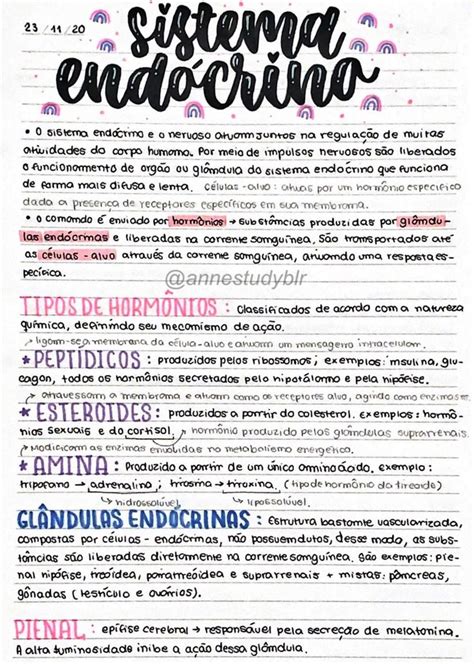 23/11/20
sistema
endócrino
• O sistema endócrino e o nervoso atuam juntos na regulação de muitas
atividades do corpo humano. Por meio de impulsos nervosos são liberados
o funcionamento de órgão ou glândula do sistema endócrino que funciona
de forma mais difusa e lenta. células-alvo: atuas por um hormônio específico
dada a presença de receptores específicos em sua membrana.
• o comando é enviado por hormônios → substâncias produzidas por glându-
las endócrinas e liberadas na corrente sanguínea. São transportados até
as células-alvo através da corrente sanguínea, ativando uma resposta es-
pecífica.
@annestudyblr
TIPOS DE HORMÔNIOS: Classificados de acordo com a natureza
química, definindo seu mecanismo de ação.
↗ ligam-se a membrana da célula-alvo e ativam um mensageiro intracelular.
* PEPTÍDICOS: produzidos pelos ribossomos; exemplos: insulina, glu-
cagon, todos os hormônios secretados pelo hipotálamo e pela hipófise.
↗ atravessam a membrana e atuam como os receptores alvo, agindo como enzimas.
* ESTEROIDES: produzidos a partir do colesterol. exemplos: hormô-
nios sexuais e do cortisol. ↗ hormônio produzido pelas glândulas suprarrenais.
↗ Modificam as enzimas envolvidas no metabolismo energético.
* AMINA: Produzido a partir de um único aminoácido. exemplo:
tripofamo → adrenalina; tirosina → tiroxina. (tipo de hormônio da tireoide)
↳ hidrossolúvel ↳ lipossolúvel
GLÂNDULAS ENDÓCRINAS: Estrutura bastante vascularizada,
compostas por células-endócrinas, não possuem dutos, desse modo, as subs-
tâncias são liberadas diretamente na corrente sanguínea. São exemplos: pie-
nal hipófise, tireóidea, paratireóidea e suprarrenais + mistas: pâncreas,
gônadas (testículo e ovários).
PIENAL: epífise cerebral → responsável pela secreção de melatonina.
A alta luminosidade inibe a ação dessa glândula.